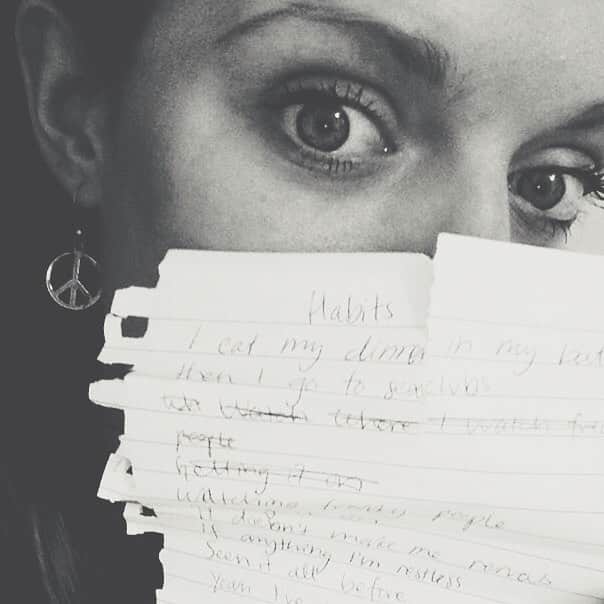 Habits
I eat my dinner in my
then I go to sexclubs
Watch where I watch
people
getting it on
watching people
It doesn't make me
if anything I'm restless
Seen it all before
Yeah I've